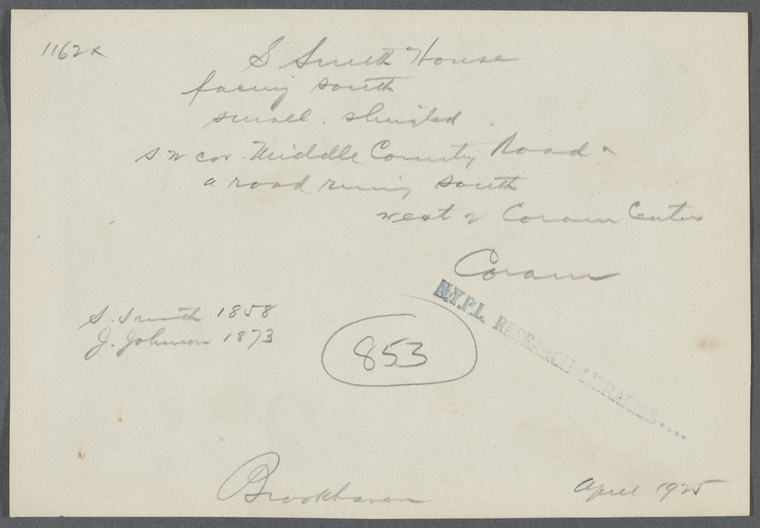 1162x
S Smith House
facing south
small. shingled.
S W cor. Middle Country Road &
a road runing south
west of Coram Center
Coram
N.Y.P.L. RESEARCH LIBRARIES....
S. Smith 1858
J. Johnson 1873
853
Brookhaven
April 1925